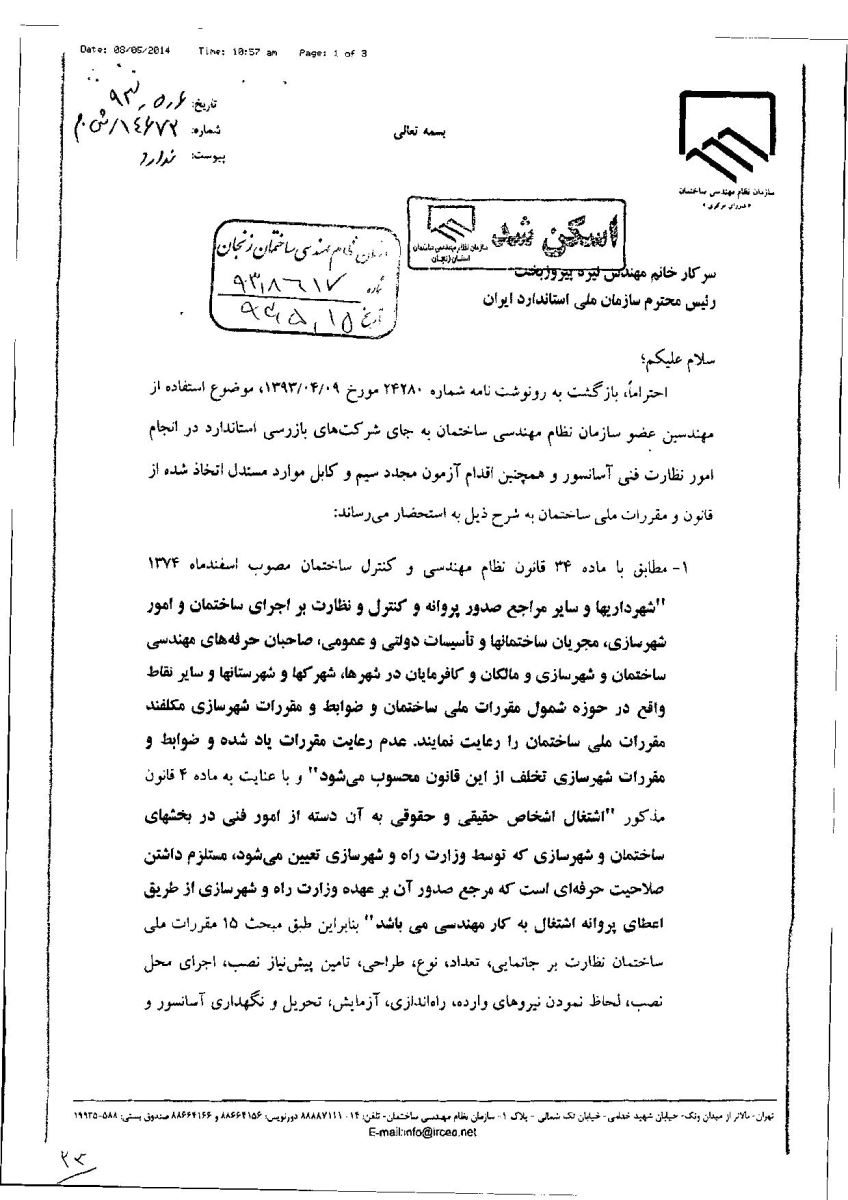 Date: 08/05/2014 Time: 10:57 am Page: 1 of 3
تاریخ: ۹۳,۵,۶
شماره: ۱۴۶۷۲/ش.م
پیوست: ندارد
بسمه تعالی
سازمان نظام مهندسی ساختمان
«شورای مرکزی»
اسکن شد
سازمان نظام مهندسی ساختمان
استان زنجان
سازمان نظام مهندسی ساختمان زنجان
شماره
تاریخ
سرکار خانم مهندس نیره پیروزبخت
رئیس محترم سازمان ملی استاندارد ایران
سلام علیکم؛
احتراماً، بازگشت به رونوشت نامه شماره ۲۴۲۸۰ مورخ ۱۳۹۳/۰۴/۰۹، موضوع استفاده از
مهندسین عضو سازمان نظام مهندسی ساختمان به جای شرکت‌های بازرسی استاندارد در انجام
امور نظارت فنی آسانسور و همچنین اقدام آزمون مجدد سیم و کابل موارد مستدل اتخاذ شده از
قانون و مقررات ملی ساختمان به شرح ذیل به استحضار می‌رساند:
۱- مطابق با ماده ۳۴ قانون نظام مهندسی و کنترل ساختمان مصوب اسفندماه ۱۳۷۴
"شهرداریها و سایر مراجع صدور پروانه و کنترل و نظارت بر اجرای ساختمان و امور
شهرسازی، مجریان ساختمانها و تأسیسات دولتی و عمومی، صاحبان حرفه‌های مهندسی
ساختمان و شهرسازی و مالکان و کافرمایان در شهرها، شهرکها و شهرستانها و سایر نقاط
واقع در حوزه شمول مقررات ملی ساختمان و ضوابط و مقررات شهرسازی مکلفند
مقررات ملی ساختمان را رعایت نمایند. عدم رعایت مقررات یاد شده و ضوابط و
مقررات شهرسازی تخلف از این قانون محسوب می‌شود" و با عنایت به ماده ۴ قانون
مذکور "اشتغال اشخاص حقیقی و حقوقی به آن دسته از امور فنی در بخشهای
ساختمان و شهرسازی که توسط وزارت راه و شهرسازی تعیین می‌شود، مستلزم داشتن
صلاحیت حرفه‌ای است که مرجع صدور آن بر عهده وزارت راه و شهرسازی از طریق
اعطای پروانه اشتغال به کار مهندسی می باشد" بنابراین طبق مبحث ۱۵ مقررات ملی
ساختمان نظارت بر جانمایی، تعداد، نوع، طراحی، تامین پیش‌نیاز نصب، اجرای محل
نصب، لحاظ نمودن نیروهای وارده، راه‌اندازی، آزمایش، تحویل و نگهداری آسانسور و
تهران- بالاتر از میدان ونک- خیابان شهید خدامی- خیابان تک شمالی - پلاک ۱- سازمان نظام مهندسی ساختمان- تلفن: ۱۴-۸۸۸۸۷۱۱۱۰ دورنویس: ۸۸۶۶۴۱۵۶ و ۸۸۶۶۴۱۶۶ صندوق پستی: ۵۸۸-۱۹۹۳۵
E-mail:info@irceo.net
۲۳